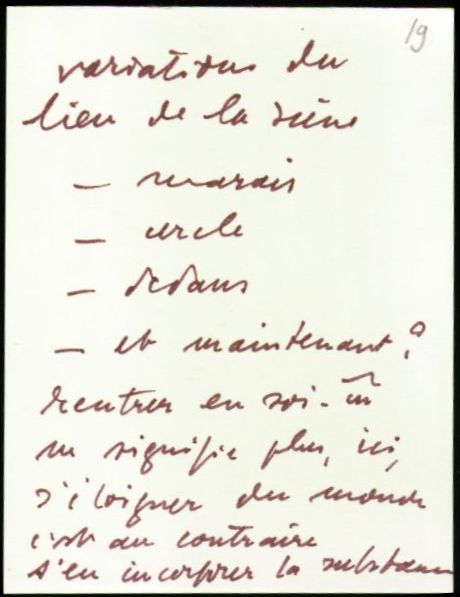 19
variations du
lieu de la scène
— marais
— cercle
— dedans
— et maintenant ?
rentrer en soi-m
ne signifie plus, ici,
s'éloigner du monde
c'est au contraire
s'en incorporer la substance